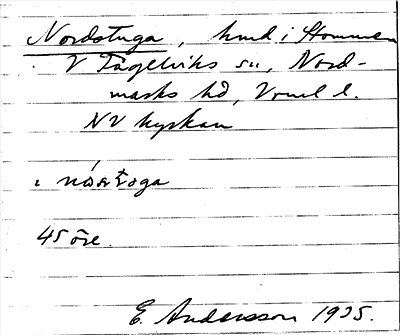 Nordstuga, hmd i Hommen
V Fågelviks sn, Nord-
marks hd, Vrml l.
NV kyrkan
i nơơrtoga
45 öre.
E. Andersson 1935.